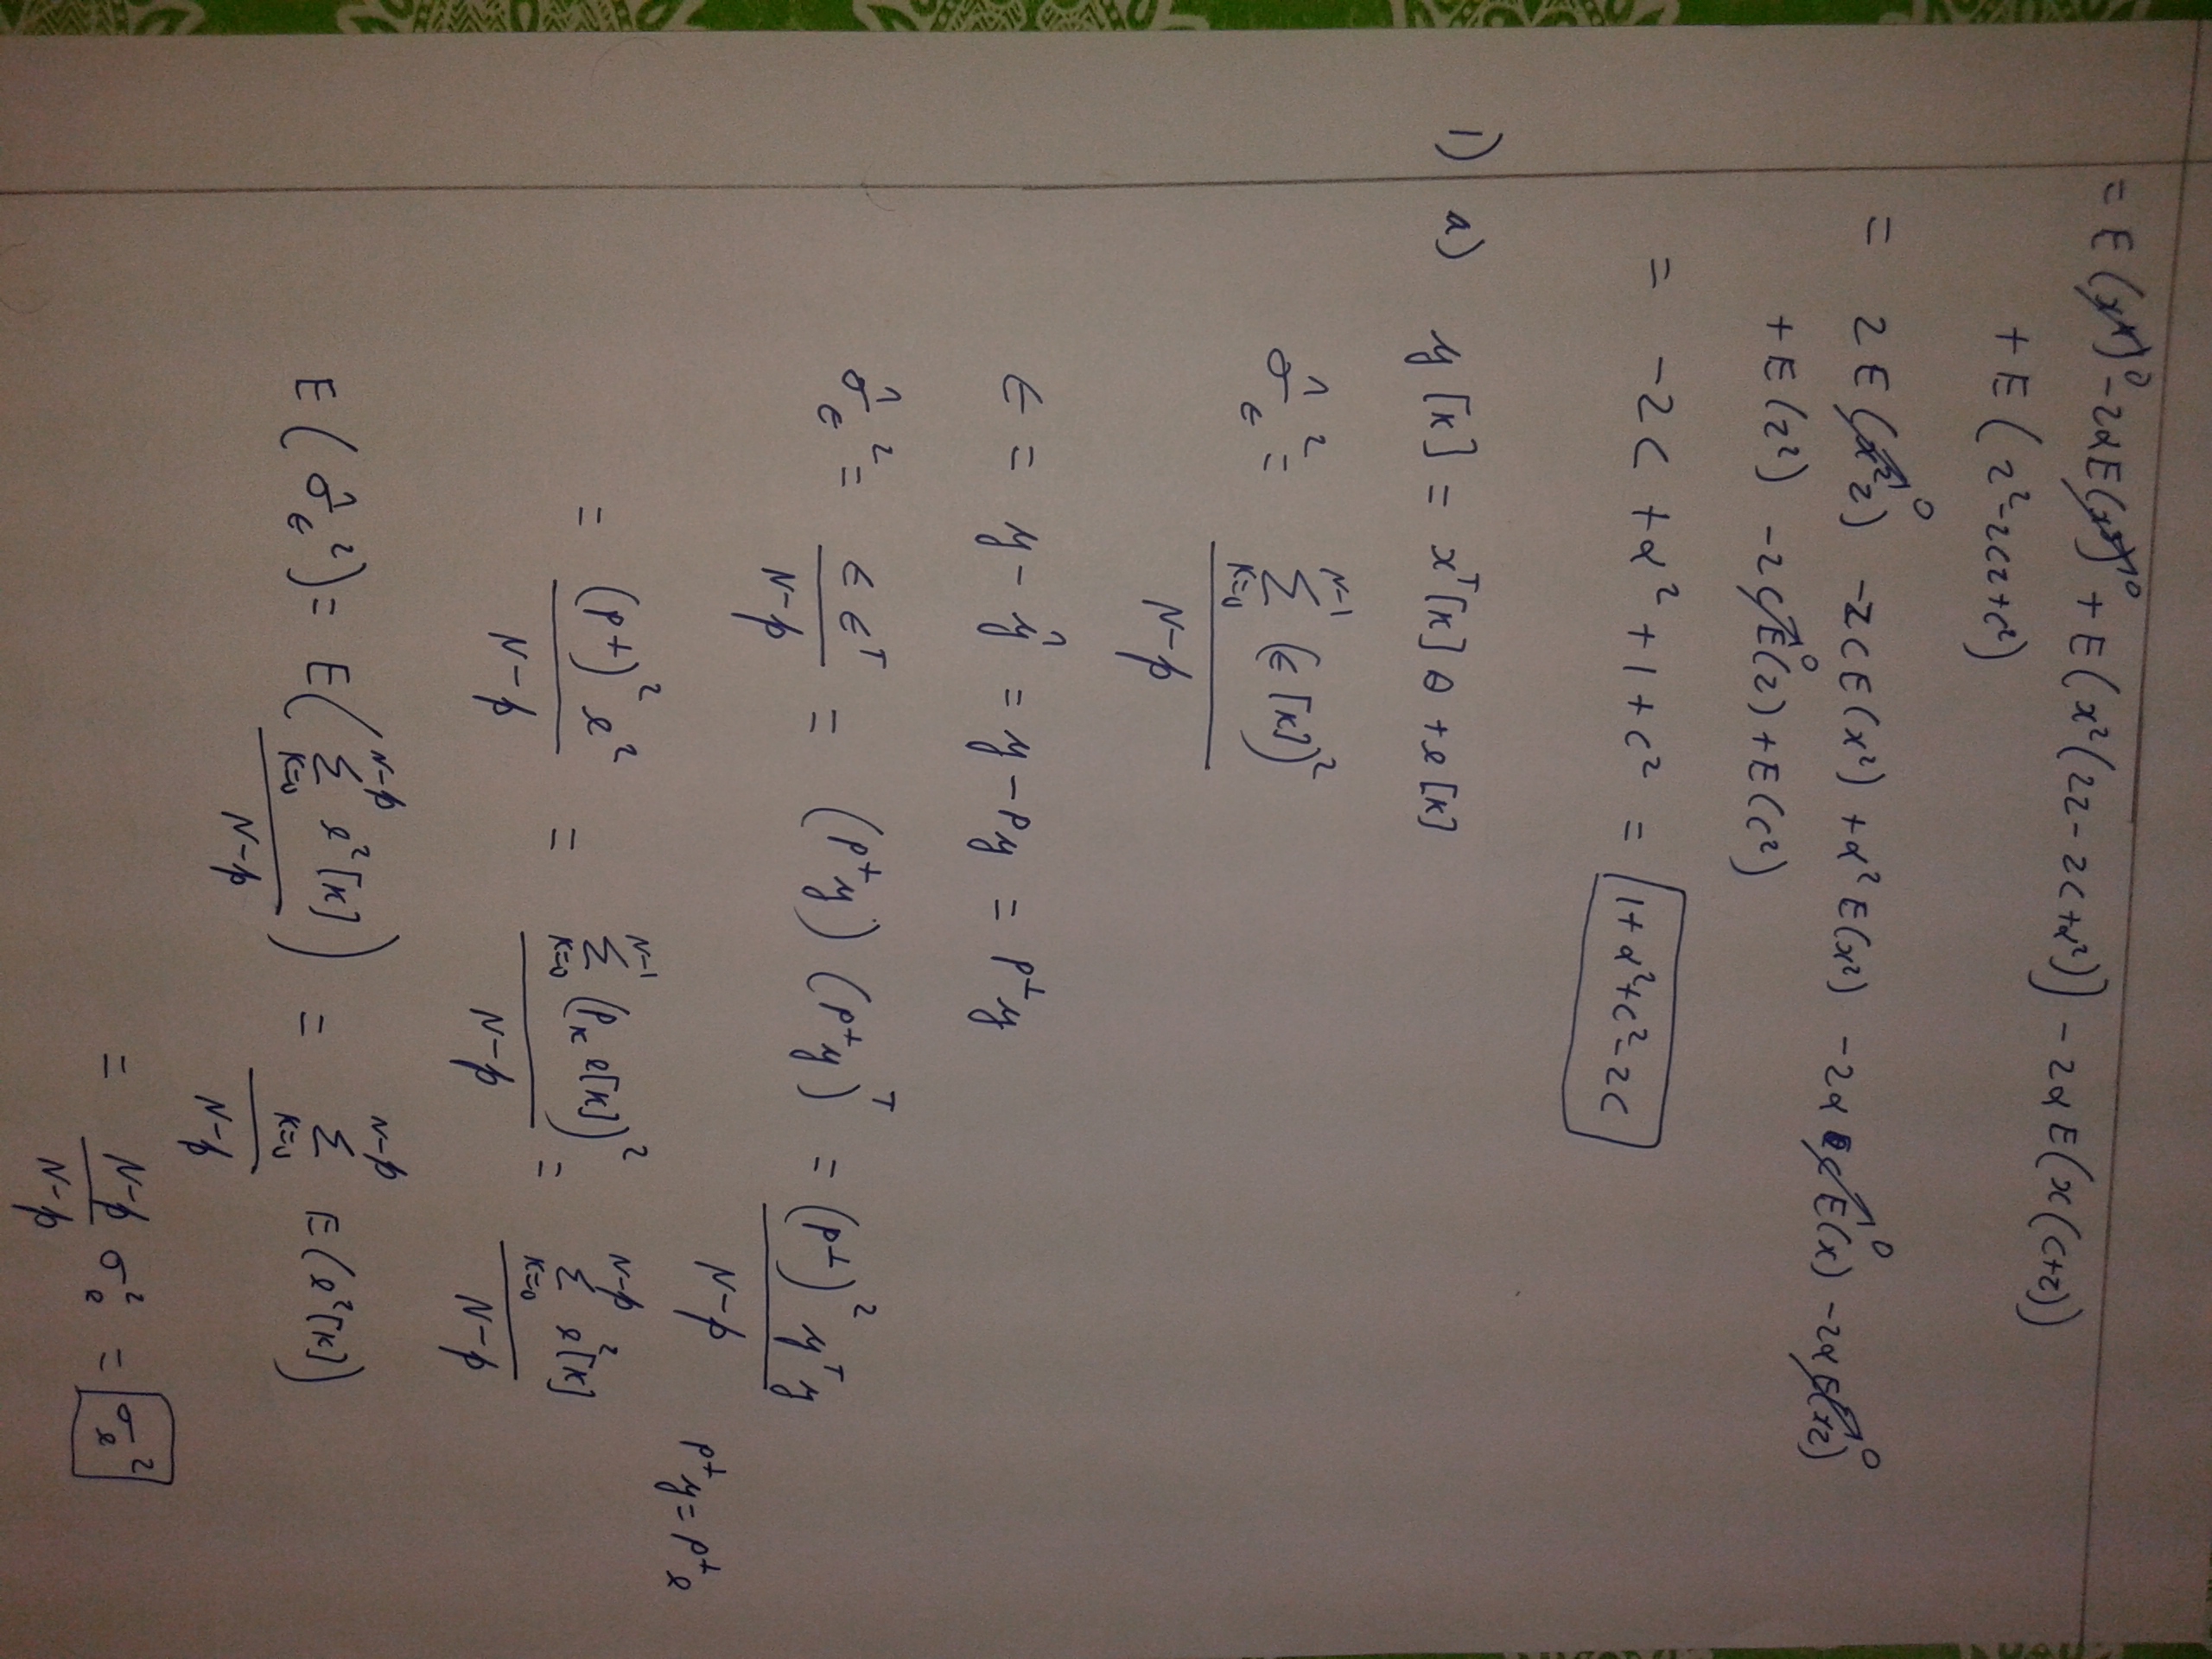 = E(x⁴)⁰ - 2αE(x³)⁰ + E(x²(2z - 2c + α²)) - 2αE(x(c+z))
+ E(z² - 2cz + c²)
= 2E(x²z)⁰ - 2cE(x²) + α²E(x²) - 2αcE(x)⁰ - 2αE(xz)⁰
+ E(z²) - 2cE(z)⁰ + E(c²)
= -2c + α² + 1 + c² = 1 + α² + c² - 2c
1) a) y[k] = xᵀ[k]θ + e[k]
σ̂_ϵ² = ∑_{k=0}^{N-1} (ϵ[k])² / N-p
ϵ = y - ŷ = y - Py = P^⊥y
σ̂_ϵ² = ϵϵᵀ / N-p = (P^⊥y)(P^⊥y)ᵀ = (P^⊥)² yᵀy / N-p
P^⊥y = P^⊥e
= (P^⊥)² e² / N-p = ∑_{k=0}^{N-1} (P_k e[k])² / N-p = ∑_{k=0}^{N-p} e²[k] / N-p
E(σ̂_ϵ²) = E(∑_{k=0}^{N-p} e²[k] / N-p) = ∑_{k=0}^{N-p} E(e²[k]) / N-p
= N-p / N-p σ_e² = σ_e²